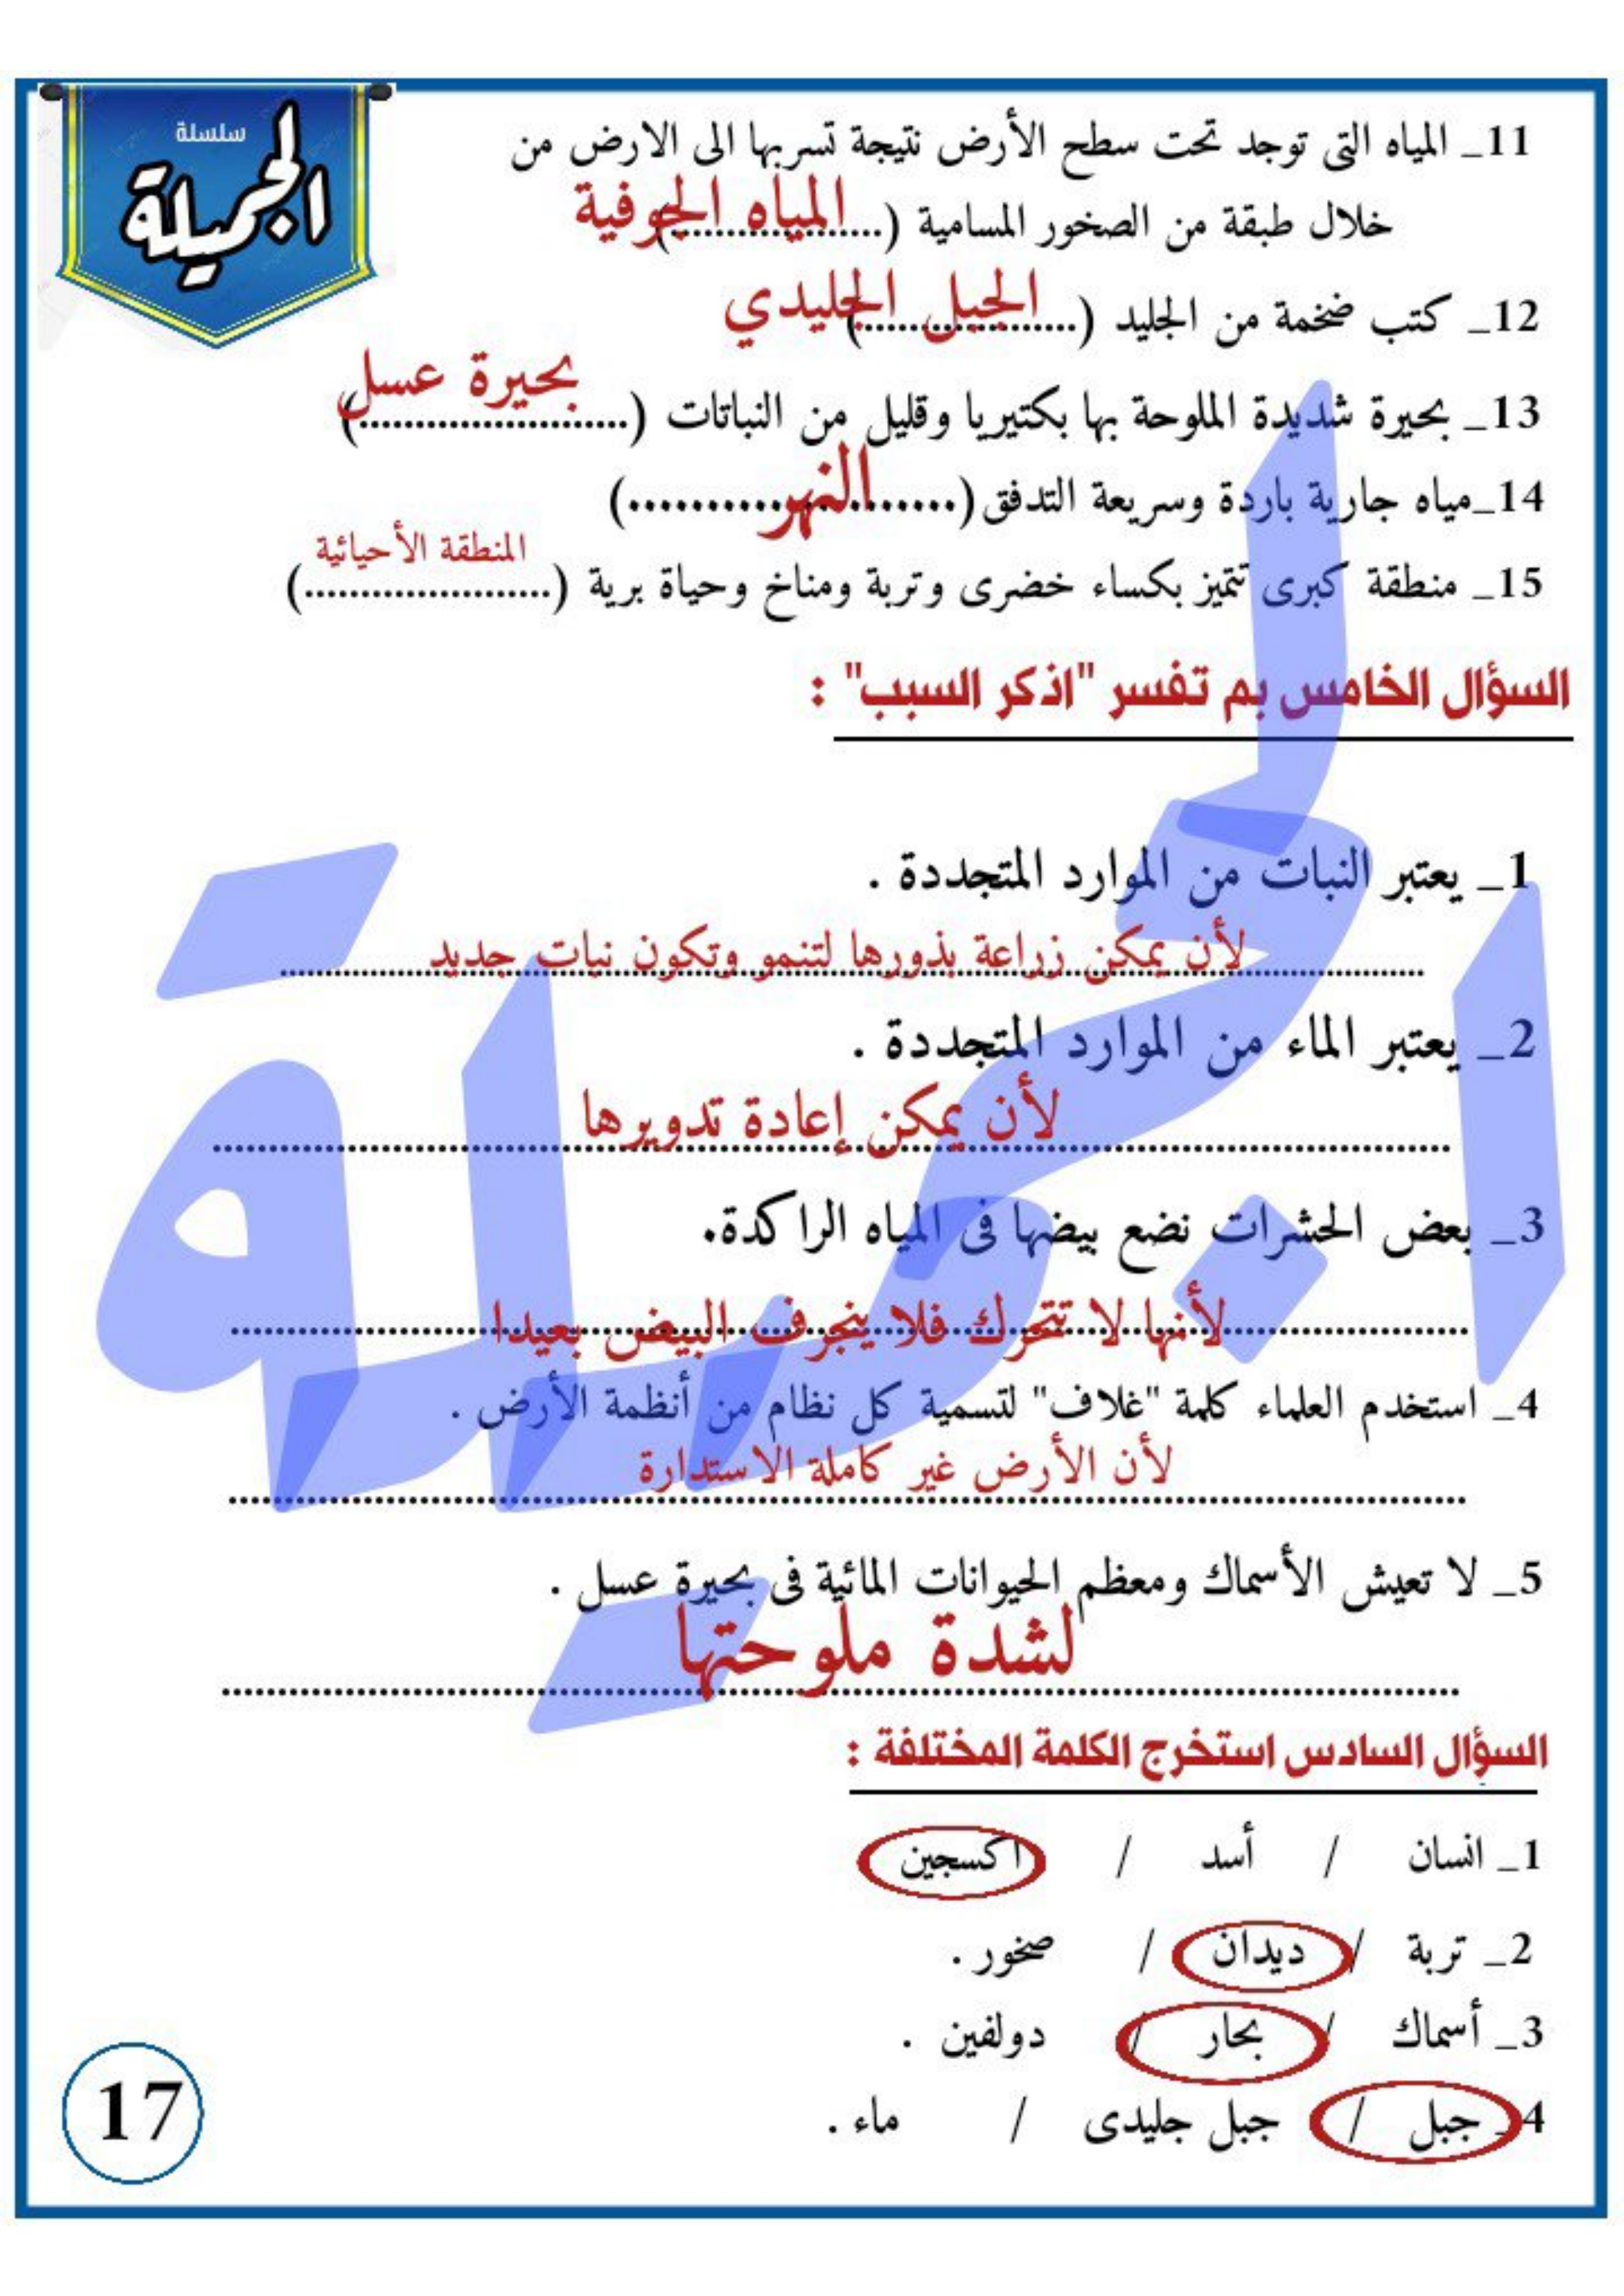 سلسلة
الجميلة
11_ المياه التى توجد تحت سطح الأرض نتيجة تسربها الى الارض من
خلال طبقة من الصخور المسامية (......المياه الجوفية......)
12_ كتب ضخمة من الجليد (......الجبل الجليدي......)
13_ بحيرة شديدة الملوحة بها بكتيريا وقليل من النباتات (......بحيرة عسل......)
14_مياه جارية باردة وسريعة التدفق (......النهر......)
15_ منطقة كبرى تتميز بكساء خضرى وتربة ومناخ وحياة برية (......المنطقة الأحيائية......)
السؤال الخامس بم تفسر "اذكر السبب" :
1_ يعتبر النبات من الموارد المتجددة .
لأن يمكن زراعة بذورها لتنمو وتكون نبات جديد
2_ يعتبر الماء من الموارد المتجددة .
لأن يمكن إعادة تدويرها
3_ بعض الحشرات نضع بيضها فى المياه الراكدة.
لأنها لا تتحرك فلا ينجرف البيض بعيدا
4_ استخدم العلماء كلمة "غلاف" لتسمية كل نظام من أنظمة الأرض .
لأن الأرض غير كاملة الاستدارة
5_ لا تعيش الأسماك ومعظم الحيوانات المائية فى بحيرة عسل .
لشدة ملوحتها
السؤال السادس استخرج الكلمة المختلفة :
1_ انسان / أسد / اكسجين
2_ تربة / ديدان / صخور .
3_ أسماك / بحار / دولفين .
4_ جبل / جبل جليدى / ماء .
17
الجميلة